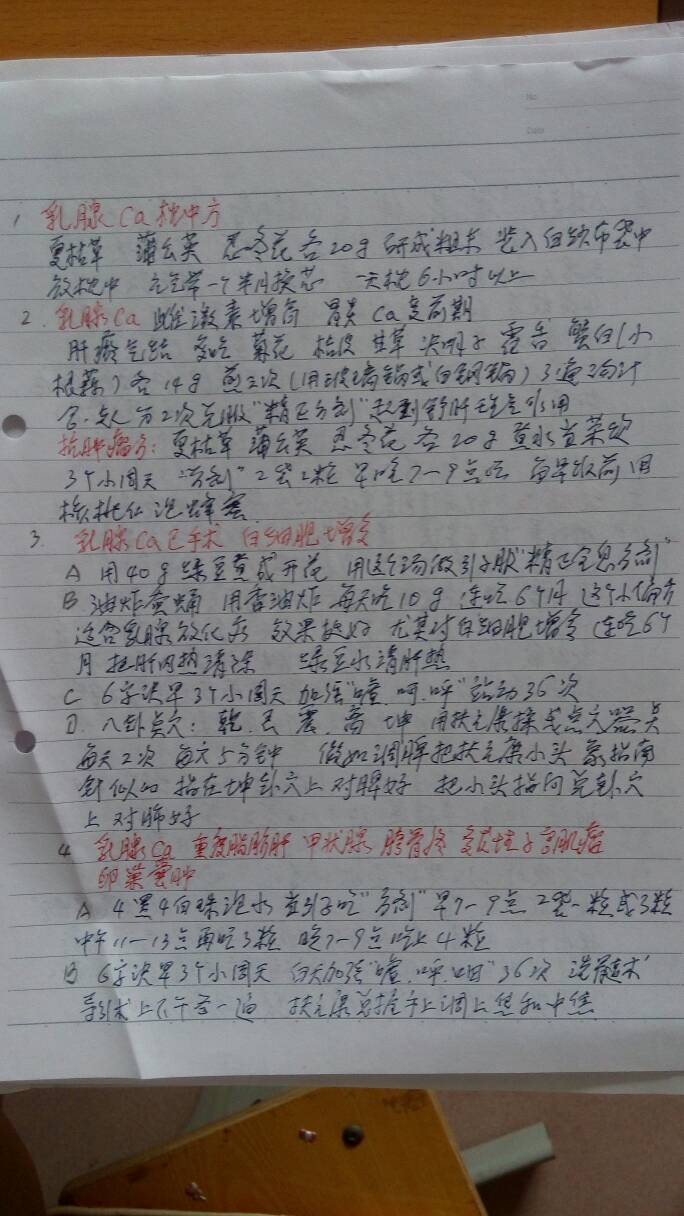 No.
Date
1 乳腺Ca 枕中方
夏枯草 蒲公英 忍冬花 各20g 研成粗末 装入白纱布袋中
放枕中 一个半月换芯 一天枕6小时以上
2. 乳腺Ca 雌激素增高 胃炎 Ca变前期
肝瘀气结 多吃 菊花 桔皮 甘草 决明子 蟹白(小
根蒜)各14g 煎三次(用玻璃锅或白钢锅)3遍汤汁
合 分2次 起到舒肝 作用
抗肿瘤方: 夏枯草 蒲公英 忍冬花 各20g 煮水当茶饮
3个小周天 "2袋2粒 早晚7-9点吃 每早饭前用
核桃仁 蜂蜜
3. 乳腺Ca已手术 白细胞增多
A 用40g绿豆煮成开花 用这个汤做引子服"精
B 油炸蚕蛹 用香油炸 每天吃10g 连吃6个月 这个小偏方
适合乳腺放化疗 效果挺好 尤其对白细胞增多 连吃6个
月 把肝内热清除 绿豆水清肝热
C 6字诀早3个小周天 加强"嘘.呵.呼" 36次
D. 八卦点穴: 乾.艮.震.离.坤 用扶元康揉或点穴器点
每天2次 每穴5分钟 假如调脾把扶元康小头象指南
针似的 指在坤卦穴上 对脾好 把小头指向兑卦穴
上 对肺好
4 乳腺Ca 重度脂肪肝 甲状腺 子宫肌瘤
卵巢囊肿
A 4黑4白珠泡水 当引子吃 早7-9点 2袋一粒或3粒
中午11-13点再吃3粒 晚7-9点吃上4粒
B 6字诀早3个小周天 白天加强"嘘.呼.呬"36次 洗髓术
导引术上下午各一遍 扶元康 手上调上焦和中焦